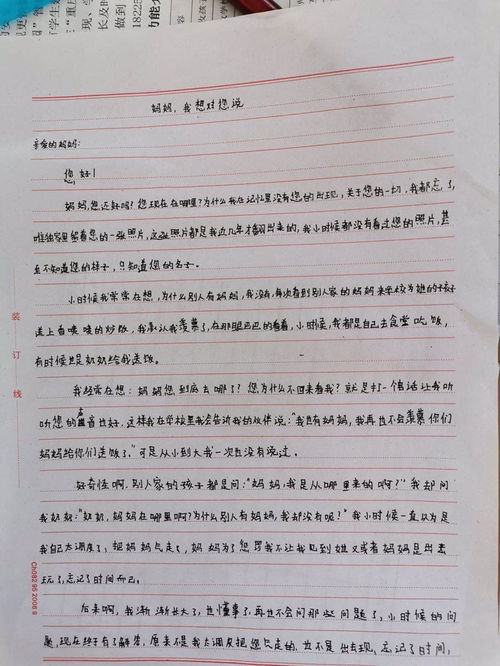 妈妈，我想对您说
亲爱的妈妈：
您好！
妈妈，您还好吗？您现在在哪里？为什么我在记忆里没有您的出现，关于您的一切，我都忘了，
唯独家里留着您的一张照片，这张照片都是我近几年才翻出来的，我小时候都没有看过您的照片，甚
至不知道您的样子，只知道您的名子。
小时候我常常在想，为什么别人有妈妈，我没有，每次看到别人家的妈妈来学校为她的孩子
送上香喷喷的炒饭，我承认我羡慕了，在那眼巴巴的看着，小时候，我都是自己去食堂吃饭，
有时候也是奶奶给我送饭。
我经常在想：妈妈您到底去哪了？您为什么不回来看我？就是打一个电话让我听
听您的声音也好，这样我在学校里我会告诉我的伙伴说："我也有妈妈，我再也不会羡慕你们
妈妈给你们送饭了。"可是从小到大我一次也没有说过。
好奇怪啊，别人家的孩子都是问："妈妈，我是从哪里来的啊？"我却问
我奶奶："奶奶，妈妈在哪里啊？为什么别人有妈妈，我却没有呢？"我小时候一直以为是
我自己太调皮了，把妈妈气走了，妈妈为了惩罚我不让我见到她又或者妈妈是出去
玩了，忘记了时间而已。
后来啊，我渐渐长大了，也懂事了，再也不会问那些问题了，小时候的问
题，现在终于有了解答，原来不是我太调皮把您气走的，也不是出去玩，忘记了时间，
装
订
线
Ch082 95 2006 9
做到
18225